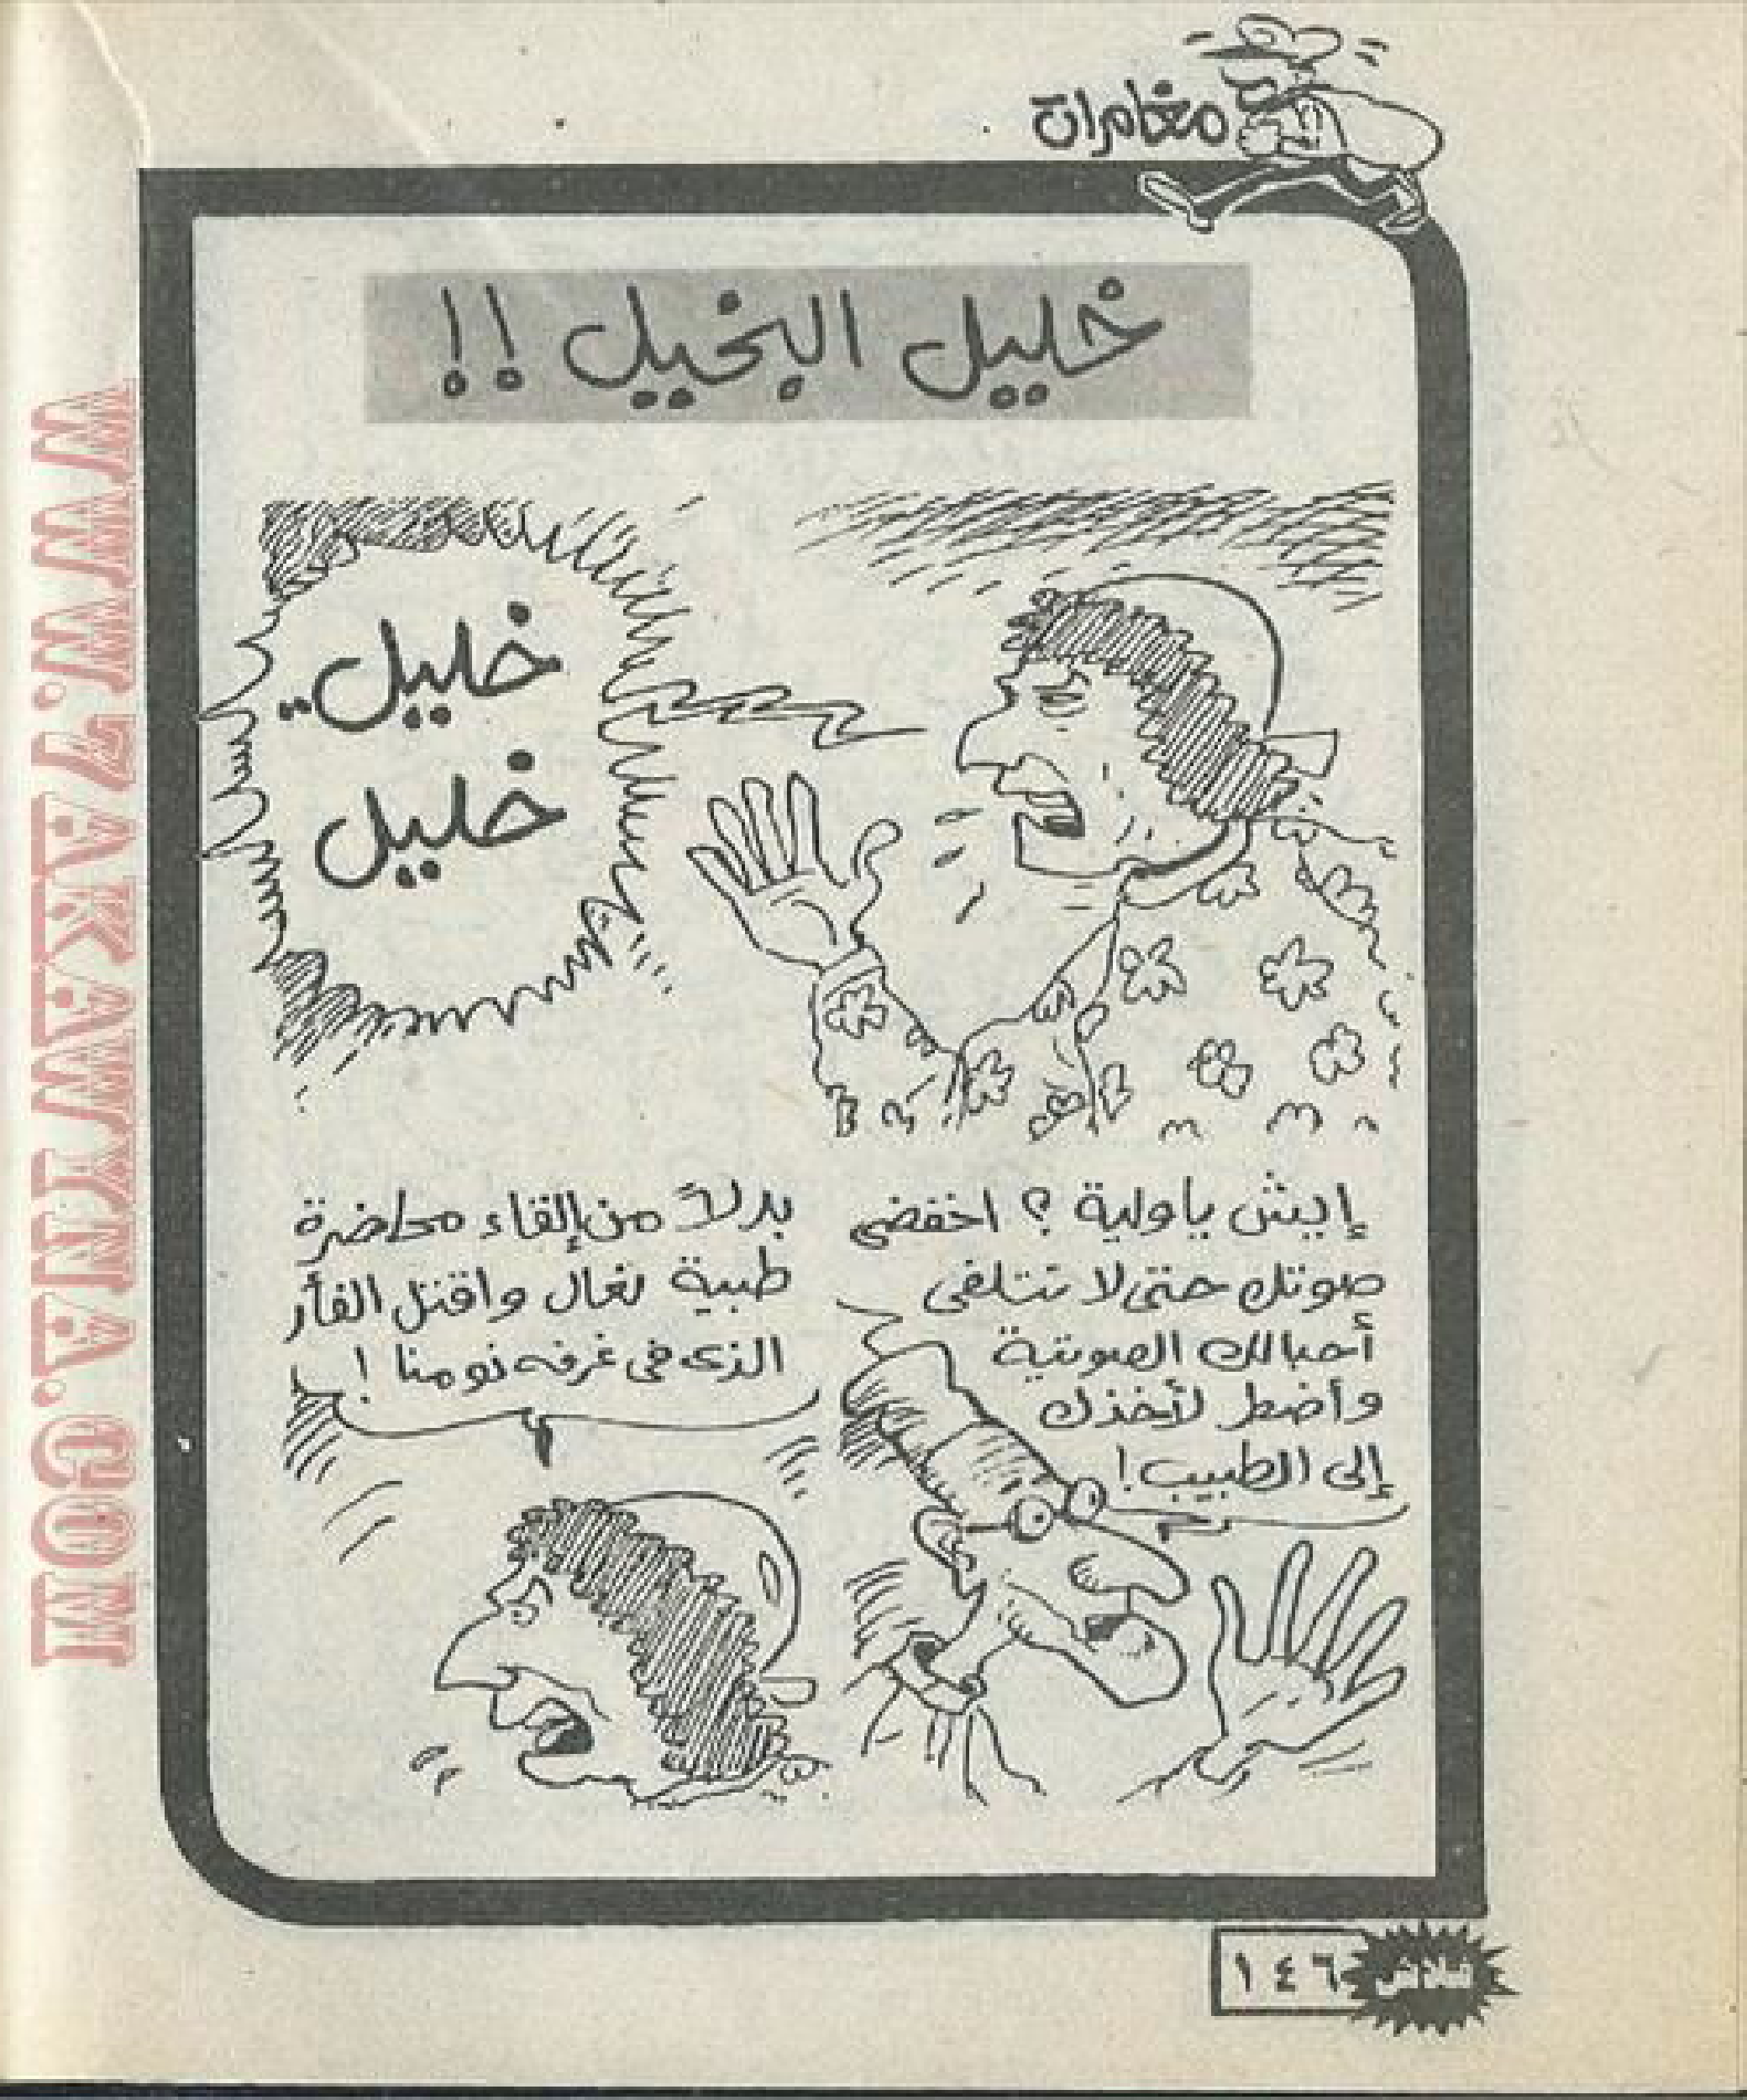 مغامرات
خليل البخيل !!
خليل ..
خليل
إيش ياولية ؟ اخفضى
صوتك حتى لا تتلفى
أحبالك الصوتية
وأضطر لأخذك
إلى الطبيب !
بدلاً من إلقاء محاضرة
طبية تعال واقتل الفأر
الذى فى غرفه نومنا !
فلاش
١٤٦
WWW.7AKAWITNA.COM